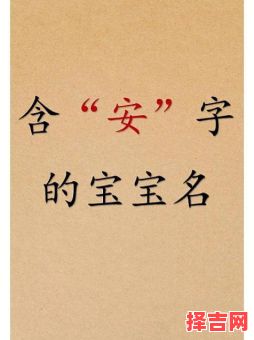 含“安”字
的宝宝名
择吉网